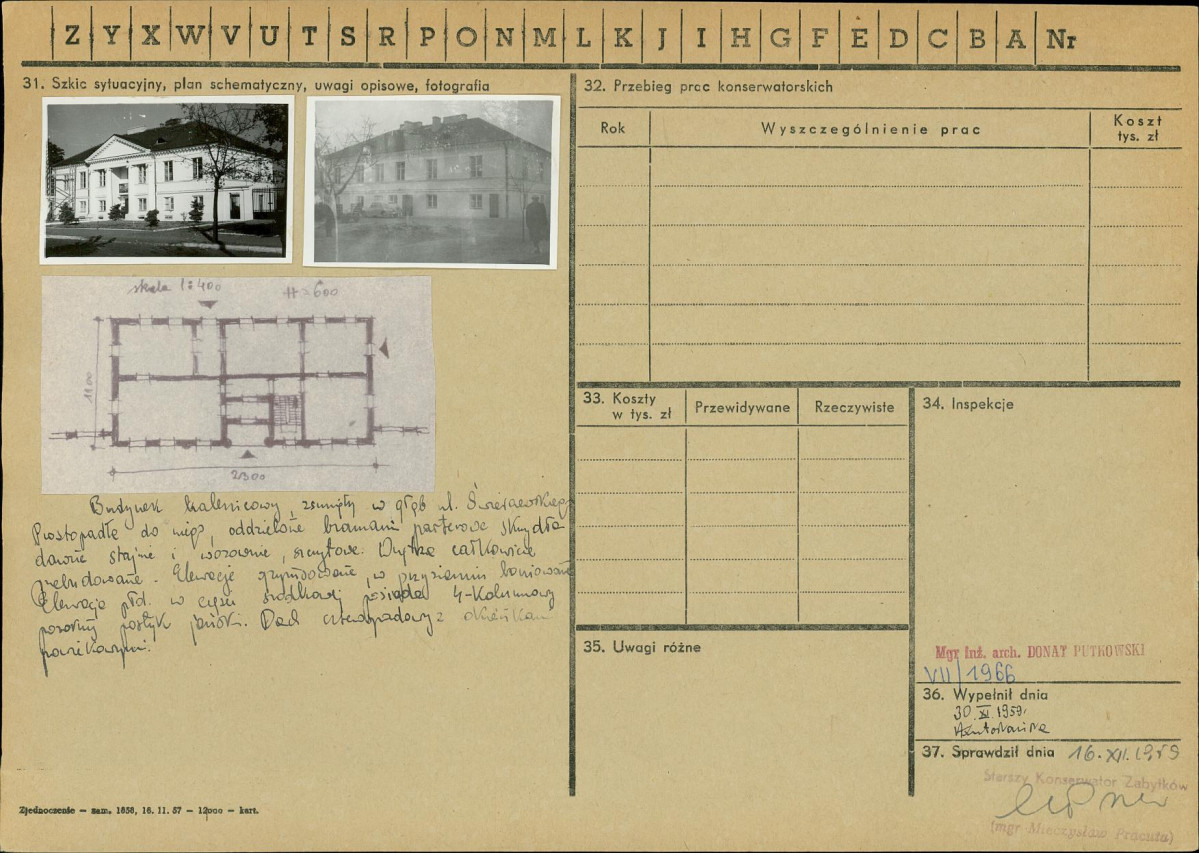 Z Y X W V U T S R P O N M L K J I H G F E D C B A Nr
31. Szkic sytuacyjny, plan schematyczny, uwagi opisowe, fotografia
skala 1:400 H=600
1100
2300
Budynek kalenicowy, zsunięty w głąb ul. Świerczewskiego
Prostopadłe do niego, oddzielone bramami parterowe skrzydła
dawne stajnie i wozownie, szczytowe. Wnętrze całkowicie
przebudowane. Elewacje gzymsowane, w przyziemiu boniowane
Elewacja płd. w części środkowej posiada 4-kolumnowy
pozorny portyk joński. Dach czterospadowy z okienkami
powiekowymi.
Zjednoczenie — zam. 1858, 16. 11. 57 — 12000 — kart.
32. Przebieg prac konserwatorskich
Rok Wyszczególnienie prac Koszt
tys. zł
33. Koszty
w tys. zł Przewidywane Rzeczywiste
34. Inspekcje
Mgr Inż. arch. DONAT PUTKOWSKI
VII/1966
35. Uwagi różne
36. Wypełnił dnia
30.XI.1959.
37. Sprawdził dnia 16.XII.1959
Starszy Konserwator Zabytków
(mgr Mieczysław Pracuta)